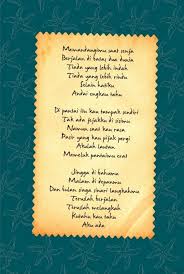 Memandangimu saat senja
Berjalan di batas dua dunia
Tiada yang lebih indah
Tiada yang lebih rindu
Selain hatiku
Andai engkau tahu
Di pantai itu kau tampak sendiri
Tak ada jejakku di sisimu
Namun saat kau rasa
Pasir yang kau pijak pergi
Akulah lautan
Memeluk pantaimu erat
Jingga di bahumu
Malam di depanmu
Dan bulan siaga sinari langkahmu
Teruslah berjalan
Teruslah melangkah
Kutahu kau tahu
Aku ada